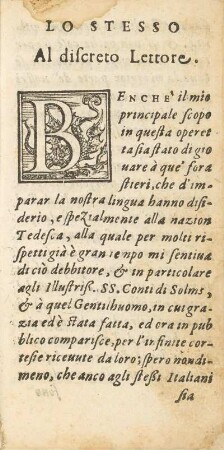 LO STESSO
Al discreto Lettore.
BENCHE' il mio
principale scopo
in questa operet
ta sia stato di gio
uare à que' fora
stieri, che d'im
parar la nostra lingua hanno disi-
derio, e spezialmente alla nazion
Tedesca, alla quale per molti ri-
spetti già è gran tempo mi sentiua
di ciò debbitore, & in particolare
agli Illustriß. SS. Conti di Solms,
& à quel Gentilhuomo, in cui gra-
zia ed è stata fatta, ed ora in pub-
blico comparisce, per l'infinite cor-
tesie riceuute da loro; spero nondi-
meno, che anco agli steßi Italiani
sia